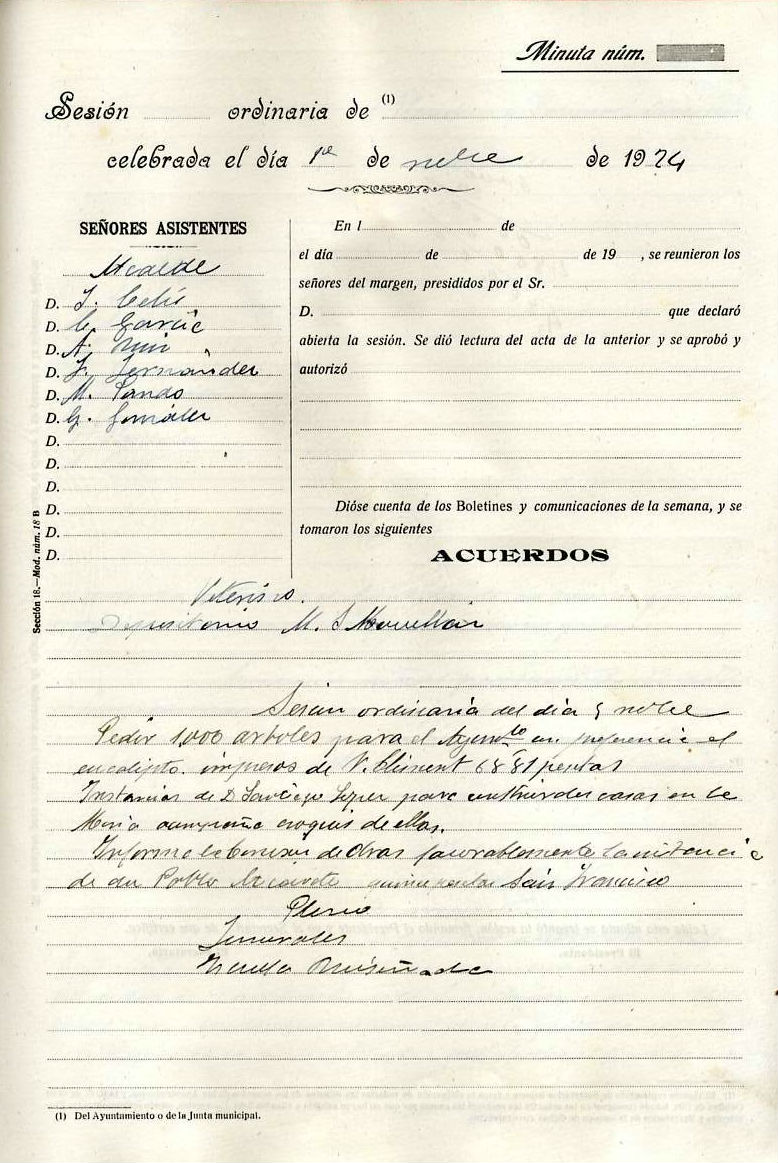 Minuta núm.
Sesión ordinaria de (1)
celebrada el día 1º de nobre de 1924
SEÑORES ASISTENTES
Alcalde
D. J. Celis
D. C. García
D. A.
D. F. Fernandez
D. M. Pando
D. G. González
D.
D.
D.
D.
D.
D.
En l de
el día de de 19 , se reunieron los
señores del margen, presididos por el Sr.
D. que declaró
abierta la sesión. Se dió lectura del acta de la anterior y se aprobó y
autorizó
Dióse cuenta de los Boletines y comunicaciones de la semana, y se
tomaron los siguientes
ACUERDOS
Depositario M. S. Movellán
Sesión ordinaria del día 5 nobre
Pedir 1,000 arboles para el Ayunto en preferencia el
eucalipto. impresos de V. Climent 68 81 pesetas
Instancias de D. López para construir dos casas en la
croquis de ellas.
Informe la Comisión de Obras favorablemente la instancia
de don Pablo San Francisco
Pleno
Sección 18.—Mod. núm. 18 B
(1) Del Ayuntamiento o de la Junta municipal.